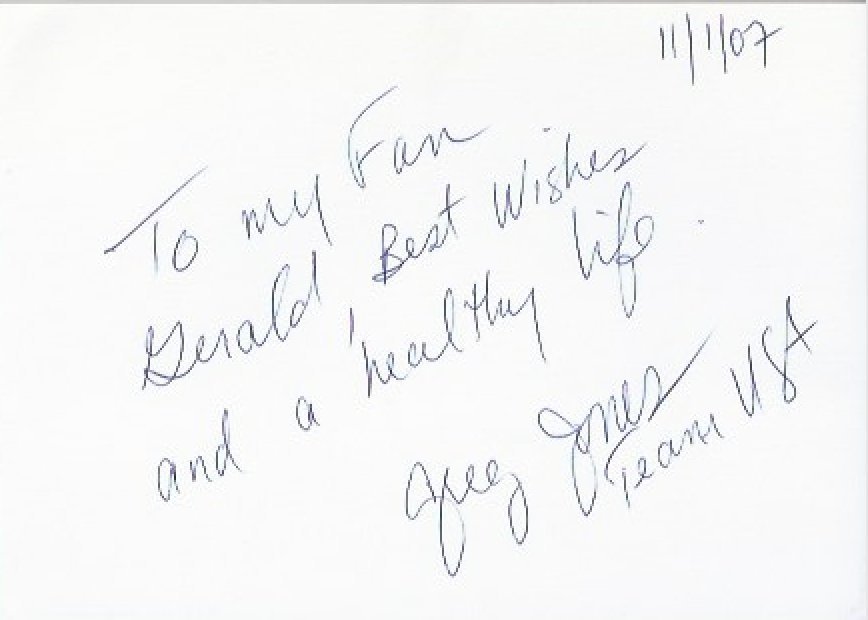 11/1/07
To my Fan
Gerald, Best Wishes
and a healthy life.
Greg Jones
Team USA